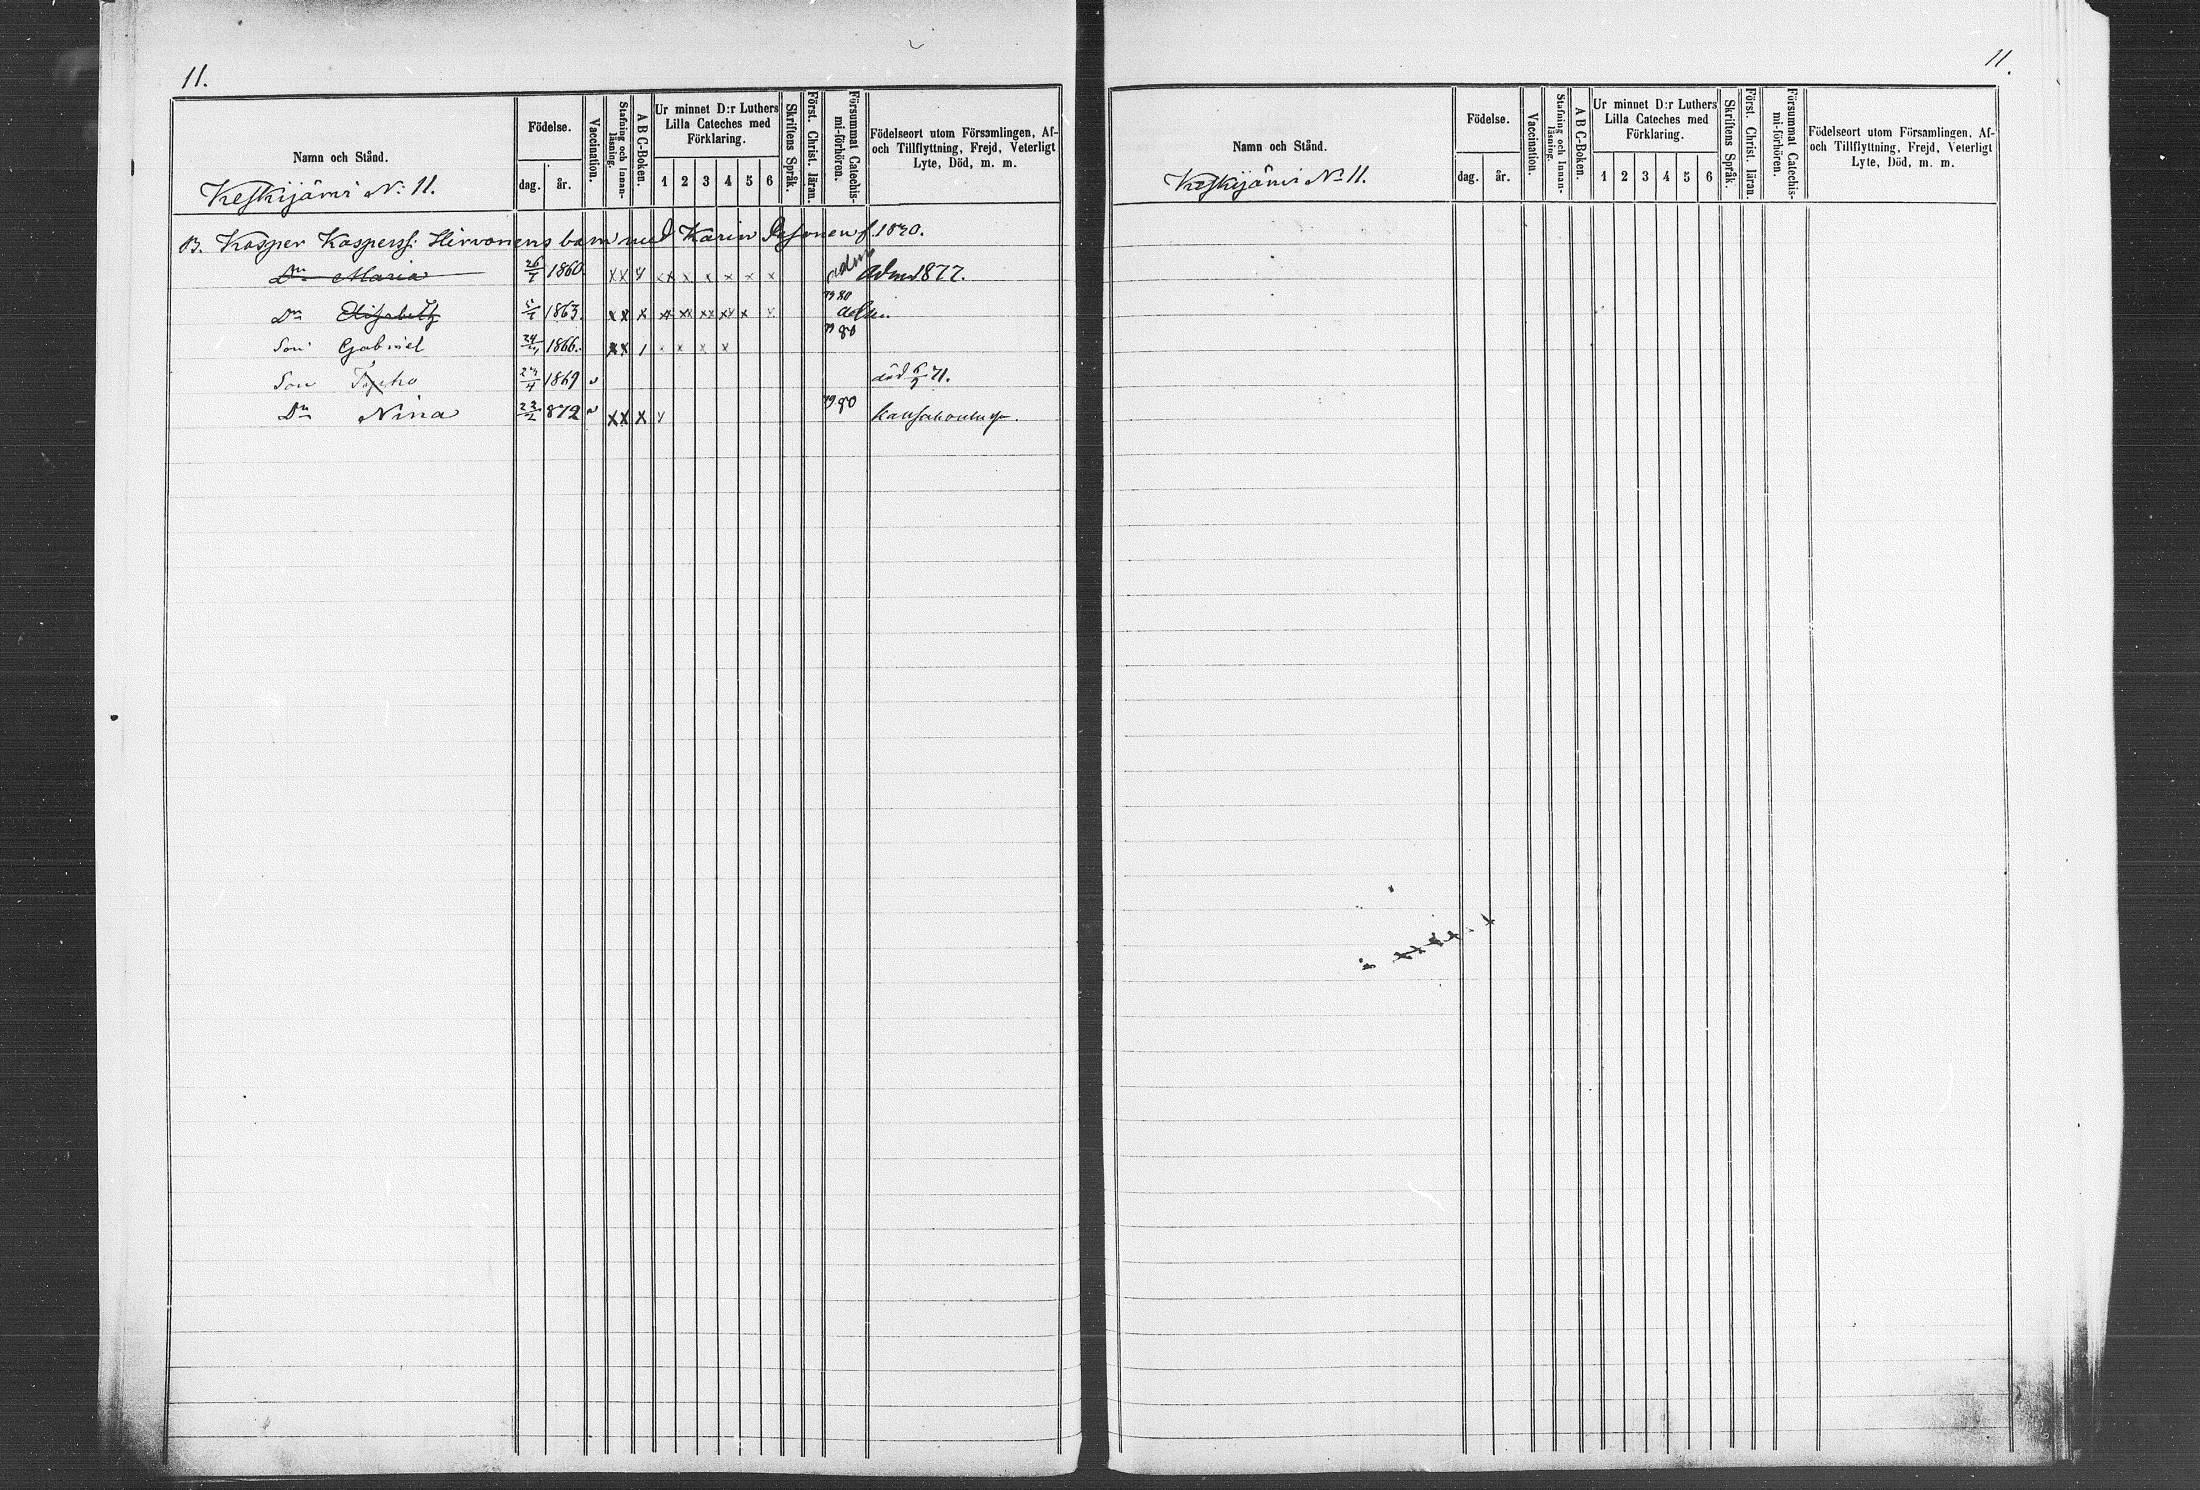 11.
Namn och Stånd. Födelse. dag. år. Vaccination. Stafning och Innan-läsning. A B C-Boken. Ur minnet D:r Luthers Lilla Cateches med Förklaring. 1 2 3 4 5 6 Skriftens Språk. Först. Christ. läran. Försummat Catechis-mi-förhören. Födelseort utom Församlingen, Af- och Tillflyttning, Frejd, Veterligt Lyte, Död, m. m.
Keskijärvi N: 11.
B. Kasper Kaspers: Hirvonens barn med Karin f. 1830.
Dr Maria 26/7 1860 x x x x x x x x x adm 1877.
79 80
Dr Elisabeth 5/1 1863. x x x xx xx xx xx x x adm.
79 80
Son Gabriel 24/ 1866. x x 1 x x x x
Son 23/4 1869 v död 6/9 71.
79 80
Dr Nina 22/2 872 v x x x x
11.
Namn och Stånd. Födelse. dag. år. Vaccination. Stafning och Innan-läsning. A B C-Boken. Ur minnet D:r Luthers Lilla Cateches med Förklaring. 1 2 3 4 5 6 Skriftens Språk. Först. Christ. läran. Försummat Catechis-mi-förhören. Födelseort utom Församlingen, Af- och Tillflyttning, Frejd, Veterligt Lyte, Död, m. m.
Keskijärvi No 11.